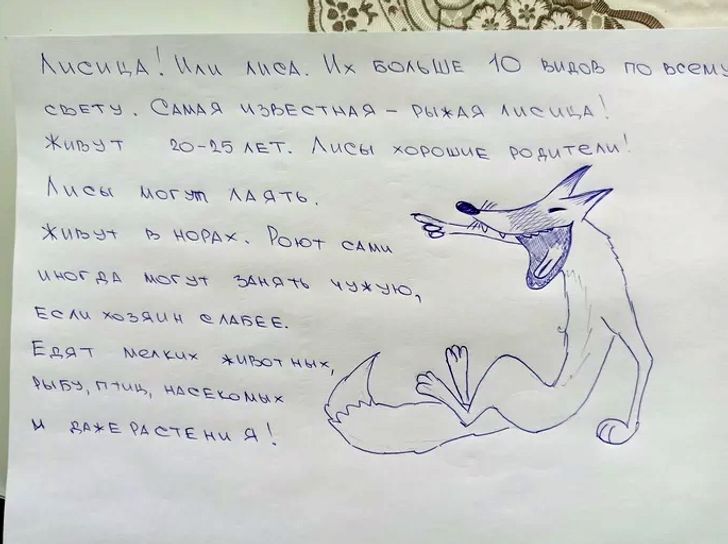 Лисица! Или лиса. Их больше 10 видов по всему
свету. Самая известная – рыжая лисица!
Живут 20-25 лет. Лисы хорошие родители!
Лисы могут лаять.
Живут в норах. Роют сами
иногда могут занять чужую,
Если хозяин слабее.
Едят мелких животных,
рыбу, птиц, насекомых
и даже растения!